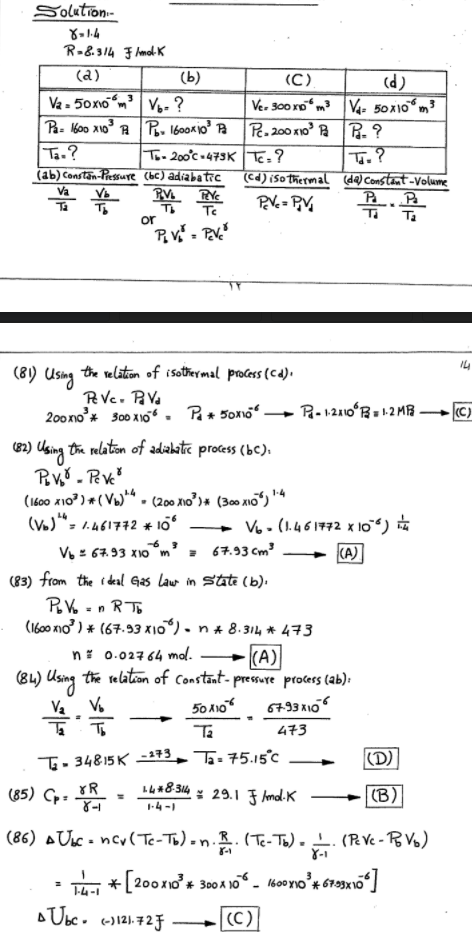 Solution:-
γ=1.4
R=8.314 J/mol.K
(a) (b) (C) (d)
Va = 50x10⁻⁶ m³ Vb = ? Vc = 300x10⁻⁶ m³ Vd = 50x10⁻⁶ m³
Pa = 1600 x10³ Pa Pb = 1600x10³ Pa Pc = 200x10³ Pa Pd = ?
Ta = ? Tb = 200°C = 473K Tc = ? Td = ?
(ab) Constan-Pressure (bc) adiabatic (cd) isothermal (da) Constant-Volume
Va/Ta Vb/Tb PbVb/Tb PcVc/Tc PcVc = PdVd Pd/Td = Pa/Ta
or
Pb Vb^γ = PcVc^γ
١٢
14
(81) Using the relation of isothermal process (cd).
Pc Vc = Pd Vd
200x10³ * 300x10⁻⁶ = Pd * 50x10⁻⁶ → Pd = 1.2x10⁶ Pa ≡ 1.2 MPa → (C)
(82) Using the relation of adiabatic process (bC):
PbVb^γ = PcVc^γ
(1600 x10³)*(Vb)^1.4 = (200x10³)*(300x10⁻⁶)^1.4
(Vb)^1.4 = 1.461772 * 10⁻⁶ → Vb = (1.461772 x 10⁻⁶)^(1/1.4)
Vb ≅ 67.93 x10⁻⁶ m³ ≡ 67.93 cm³ → (A)
(83) from the ideal Gas Law in State (b).
PbVb = n R Tb
(1600x10³) * (67.93 x10⁻⁶) = n * 8.314 * 473
n ≅ 0.02764 mol. → (A)
(84) Using the relation of Constant-pressure process (ab):
Va/Ta = Vb/Tb → 50x10⁻⁶/Ta = 67.93x10⁻⁶/473
Ta = 348.15K -273→ Ta = 75.15°C → (D)
(85) Cp = γR/γ-1 = 1.4*8.314/1.4-1 ≅ 29.1 J/mol.K → (B)
(86) ΔUbC = nCv(Tc-Tb) = n. R/γ-1 . (Tc-Tb) = 1/γ-1 . (PcVc - PbVb)
= 1/1.4-1 * [200x10³ * 300x10⁻⁶ - 1600x10³ * 67.93x10⁻⁶]
ΔUbc = (-)121.72 J → (C)